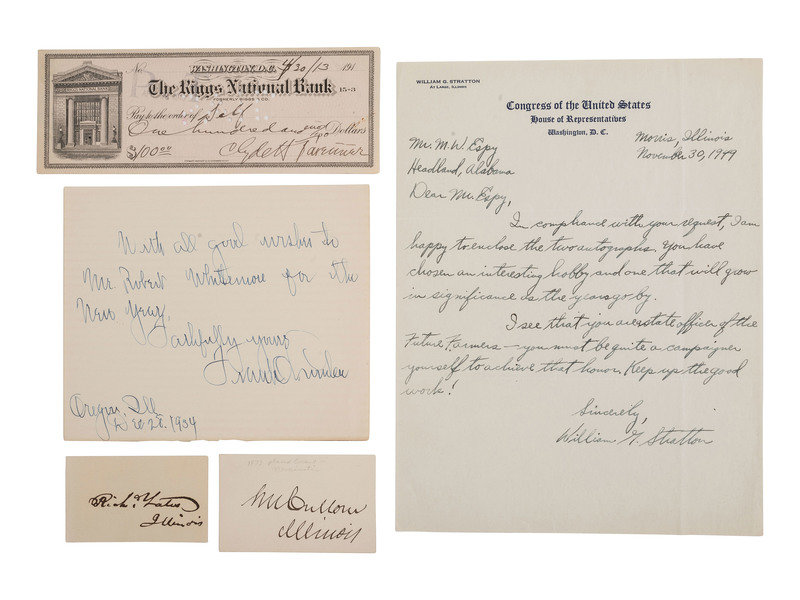 No. WASHINGTON, D.C. 4/30/13 191
The Riggs National Bank 15-3
FORMERLY RIGGS & CO.
Pay to the order of Self
One hundred and no/100 Dollars
$100.00 Clyde H. Tavenner
With all good wishes to
Mr. Robert Whitemore for the
New Year,
Faithfully yours
Frank O Lowden
Oregon, Ill.
Dec 28. 1934
Rich. Yates
Illinois
1873
S M Cullom
Illinois
WILLIAM G. STRATTON
AT LARGE, ILLINOIS
Congress of the United States
House of Representatives
Washington, D. C.
Morris, Illinois
November 30, 1949
Mr. M. W. Espy
Headland, Alabama
Dear Mr. Espy,
In compliance with your request, I am
happy to enclose the two autographs. You have
chosen an interesting hobby and one that will grow
in significance as the years go by.
I see that you are state officer of the
Future Farmers — you must be quite a campaigner
yourself to achieve that honor. Keep up the good
work!
Sincerely,
William G. Stratton